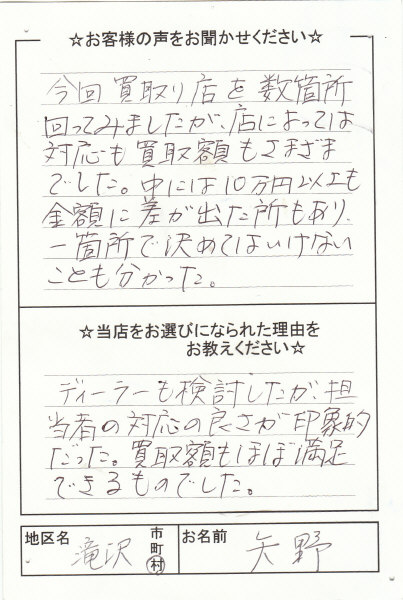 ☆お客様の声をお聞かせください☆
今回買取り店を数箇所
回ってみましたが、店によっては
対応も買取額もさまざま
でした。中には10万円以上も
金額に差が出た所もあり、
一箇所で決めてはいけない
ことも分かった。
☆当店をお選びになられた理由を
お教えください☆
ディーラーも検討したが、担
当者の対応の良さが印象的
だった。買取額もほぼ満足
できるものでした。
地区名 滝沢 市町村 お名前 矢野